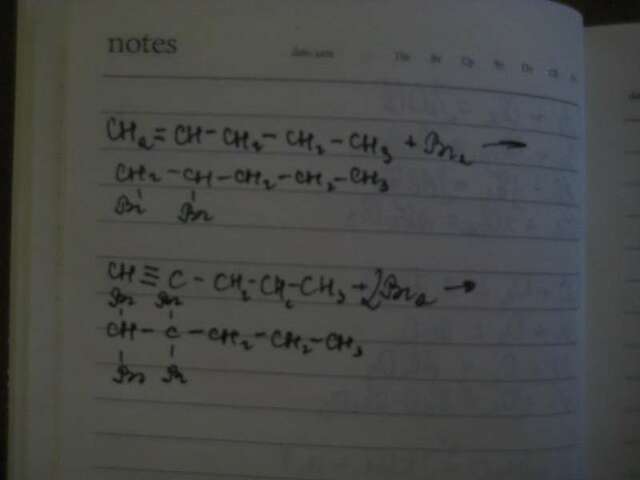 notes
CH₂=CH-CH₂-CH₂-CH₃ + Br₂ →
CH₂-CH-CH₂-CH₂-CH₃
Br Br
CH≡C-CH₂-CH₂-CH₃+2Br₂ →
Br Br
CH-C-CH₂-CH₂-CH₃
Br Br